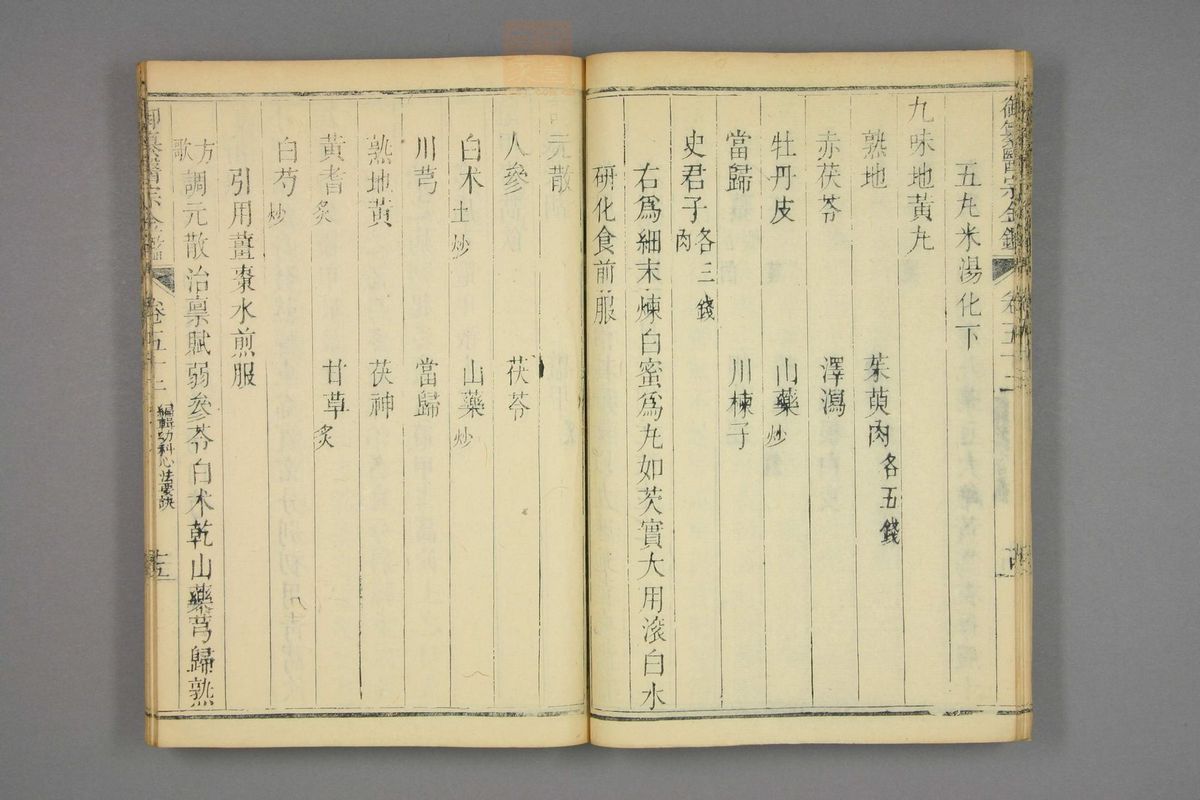 五丸米湯化下
九味地黃丸
熟地　茱萸肉各五錢
赤茯苓　澤瀉
牡丹皮　山藥炒
當歸　川楝子
史君子肉各三錢
右為細末煉白蜜為丸如芡實大用滾白水
研化食前服
元散
人參　茯苓
白朮土炒　山藥炒
川芎　當歸
熟地黃　茯神
黃耆炙　甘草炙
白芍炒
引用薑棗水煎服
方歌調元散治禀賦弱參苓白朮乾山藥芎歸熟
御纂醫宗金鑑　卷五十二　編輯幼科心法要訣　十五